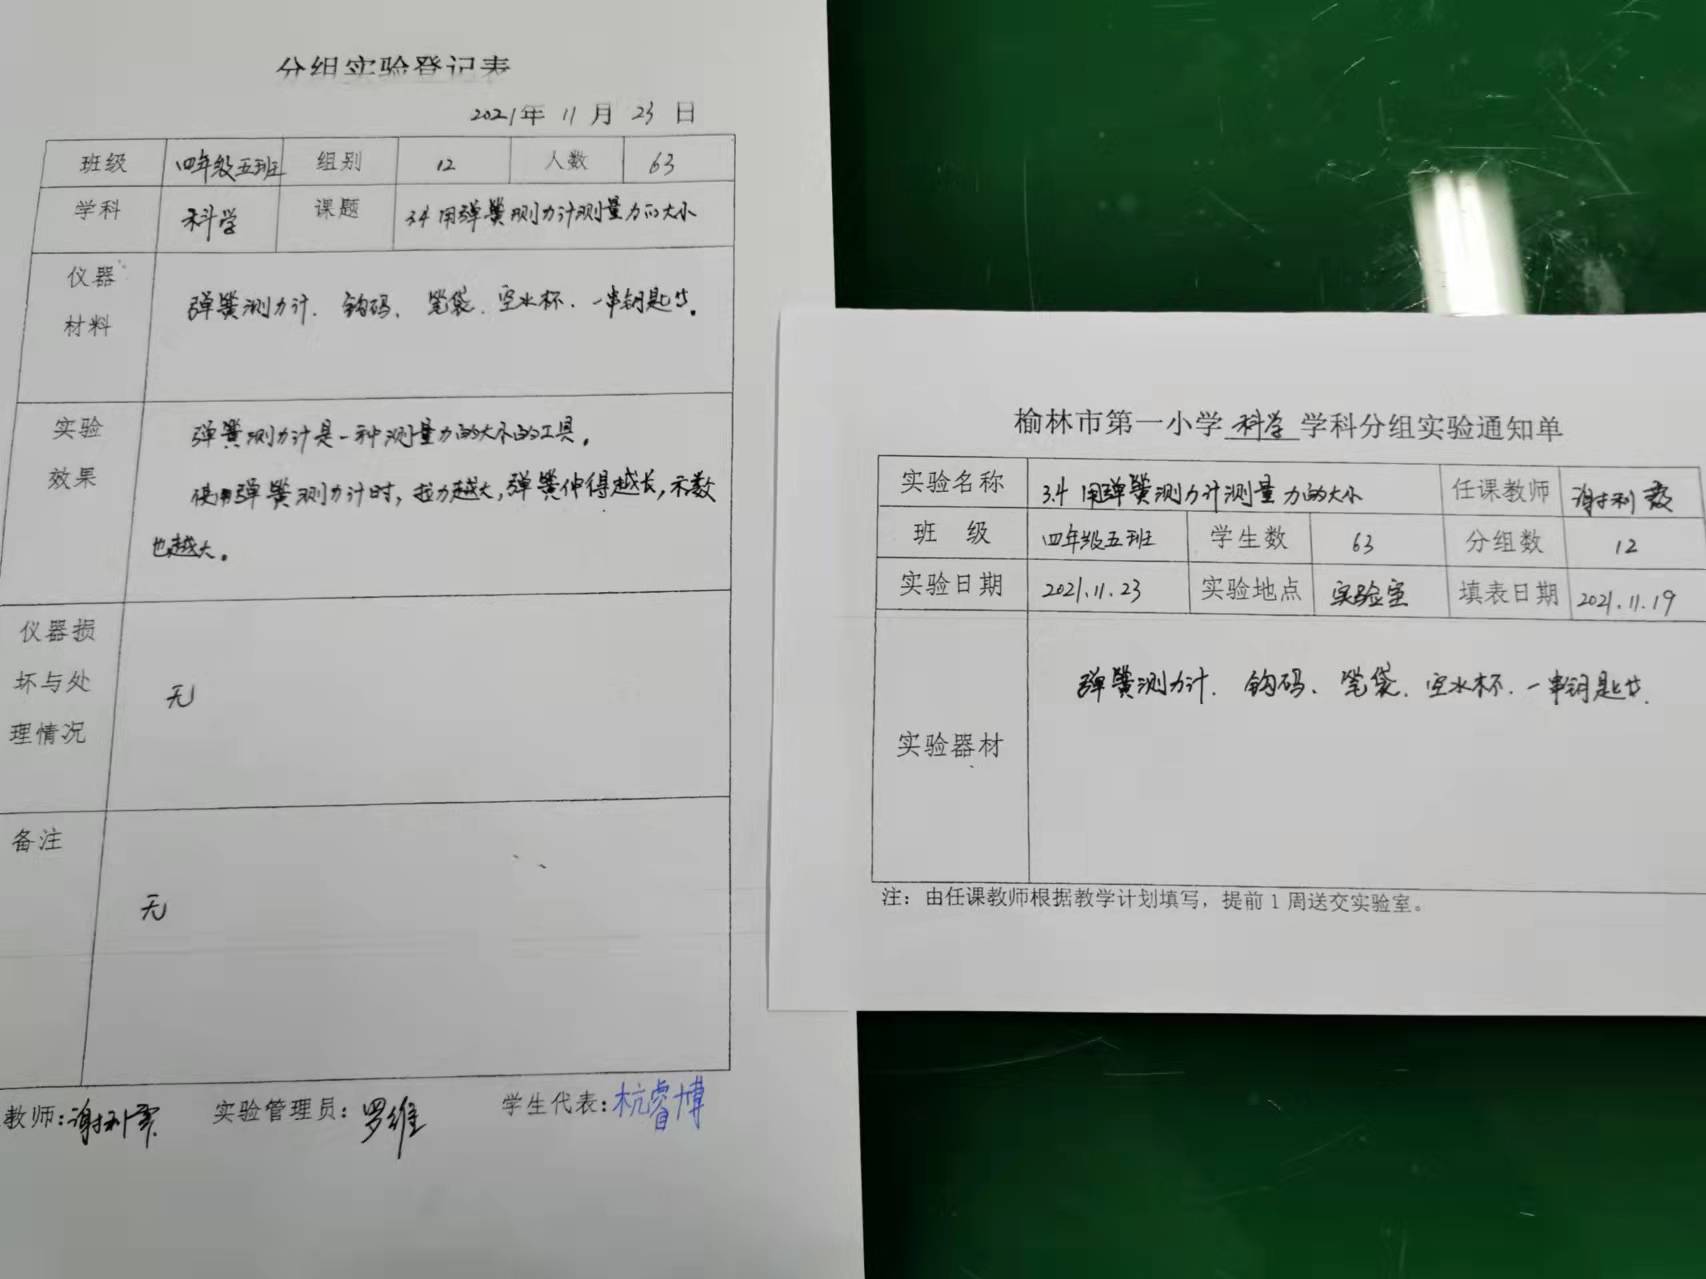 分组实验登记表
2021年 11 月 23 日
班级 四年级五班 组别 12 人数 63
学科 科学 课题 3.4 用弹簧测力计测量力的大小
仪器
材料
弹簧测力计、钩码、笔袋、空水杯、一串钥匙等。
实验
效果
弹簧测力计是一种测量力的大小的工具。
使用弹簧测力计时，拉力越大，弹簧伸得越长，示数
也越大。
仪器损
坏与处
理情况
无
备注
无
教师：谢利 实验管理员：罗维 学生代表：杭睿博
榆林市第一小学 科学 学科分组实验通知单
实验名称 3.4 用弹簧测力计测量力的大小 任课教师 谢利
班 级 四年级五班 学生数 63 分组数 12
实验日期 2021.11.23 实验地点 实验室 填表日期 2021.11.19
实验器材
弹簧测力计、钩码、笔袋、空水杯、一串钥匙等.
注：由任课教师根据教学计划填写，提前 1 周送交实验室。